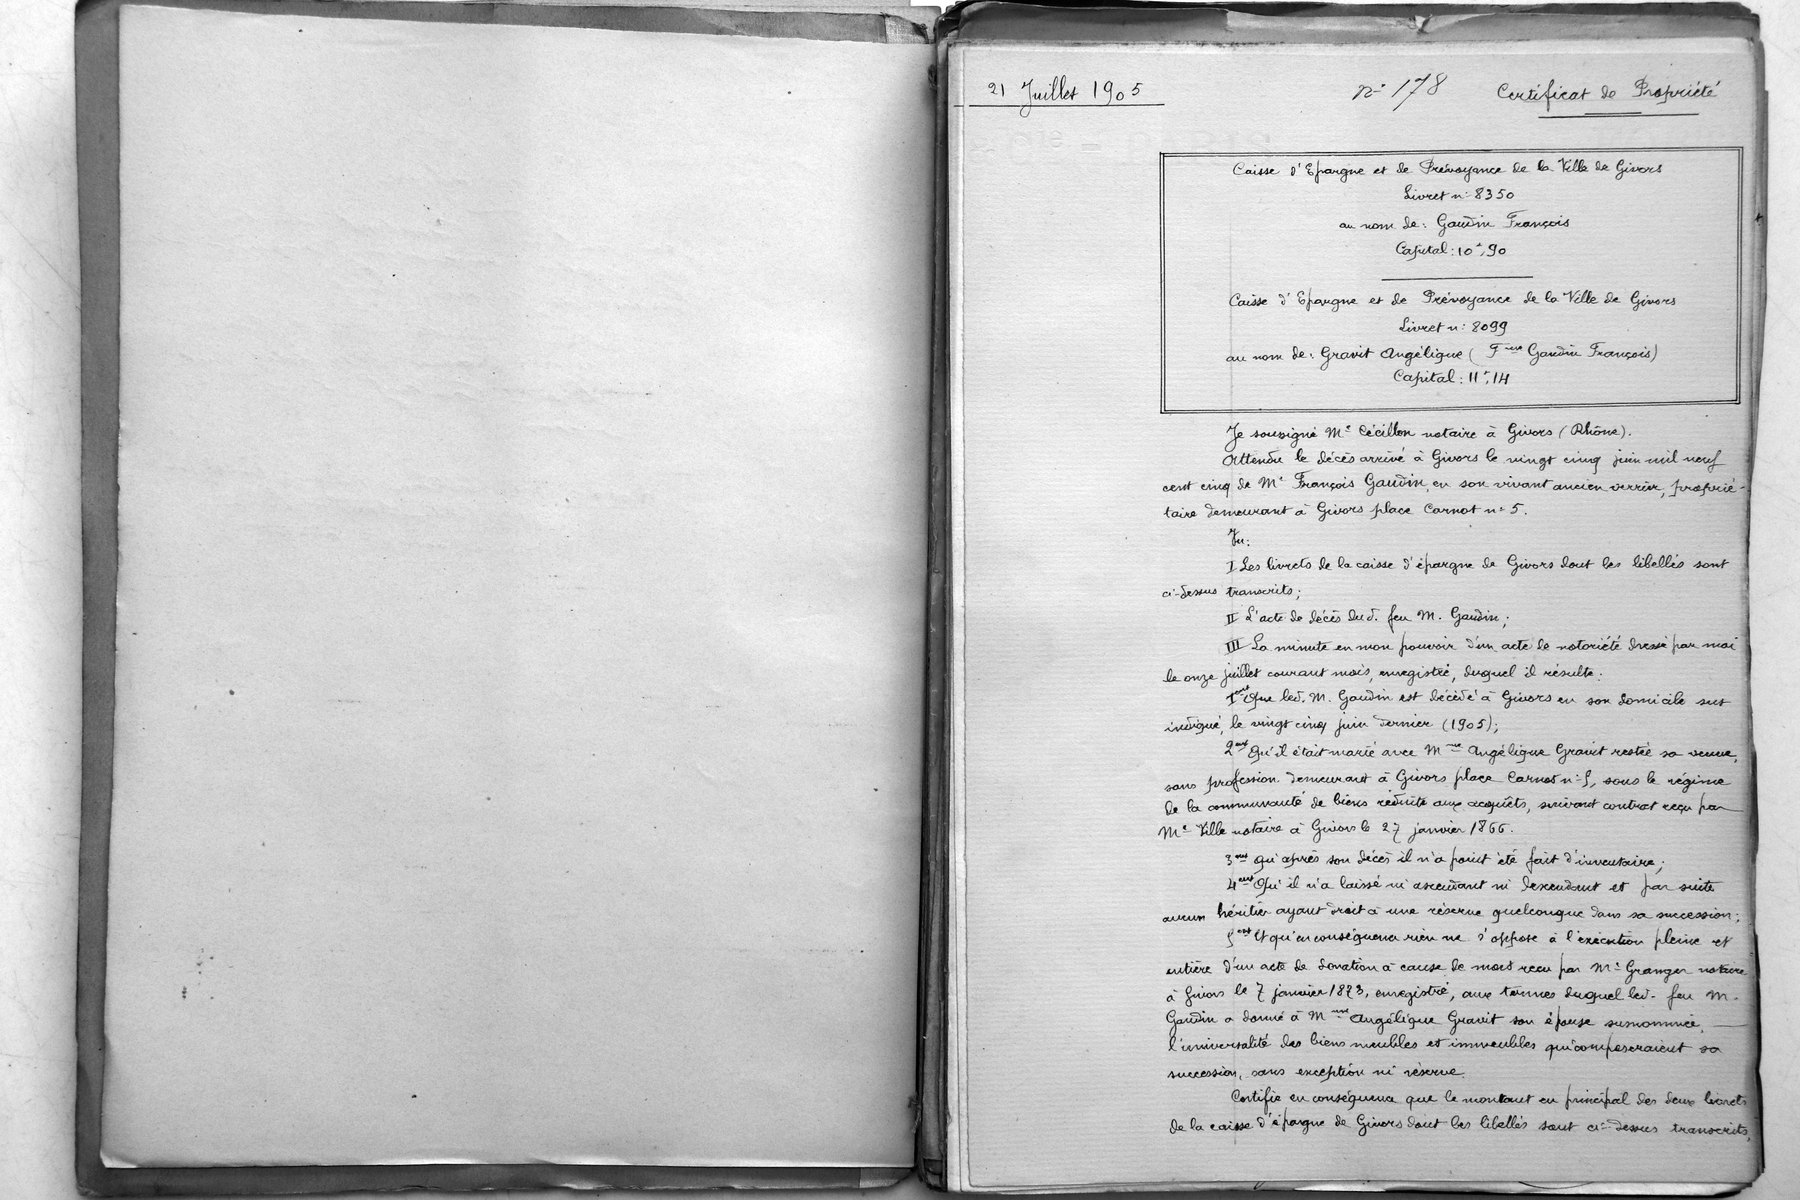 21 Juillet 1905
n° 178
Certificat de Propriété
Caisse d'Epargne et de Prévoyance de la Ville de Givors
Livret n: 8350
au nom de: Gaudin François
Capital: 10f,90
Caisse d'Epargne et de Prévoyance de la Ville de Givors
Livret n: 8099
au nom de: Gravit Angélique (Fme Gaudin François)
Capital: 11f,14
Je soussigné Me Cécillon notaire à Givors (Rhône).
Attendu le décès arrivé à Givors le vingt cinq juin mil neuf
cent cinq de Mr François Gaudin, en son vivant ancien verrier, proprié-
taire demeurant à Givors place Carnot n: 5.
Vu:
I Les livrets de la caisse d'épargne de Givors dont les libellés sont
ci-dessus transcrits;
II L'acte de décès dud. feu M. Gaudin;
III La minute en mon pouvoir d'un acte de notoriété dressé par moi
le onze juillet courant mois, enregistré, duquel il résulte:
1ent Que led. M. Gaudin est décédé à Givors en son domicile sus
indiqué, le vingt cinq juin dernier (1905);
2ent Qu'il était marié avec Mme Angélique Gravit restée sa veuve,
sans profession demeurant à Givors place Carnot n: 5, sous le régime
de la communauté de biens réduite aux acquêts, suivant contrat reçu par
Me Ville notaire à Givors le 27 janvier 1866.
3ent qu'après son décès il n'a point été fait d'inventaire;
4ent Qu'il n'a laissé ni ascendant ni descendant et par suite
aucun héritier ayant droit à une réserve quelconque dans sa succession;
5ent Et qu'en conséquence rien ne s'oppose à l'exécution pleine et
entière d'un acte de donation à cause de mort reçu par Me Granger notaire
à Givors le 7 janvier 1873, enregistré, aux termes duquel led. feu M.
Gaudin a donné à Mme Angélique Gravit son épouse susnommée,
l'universalité des biens meubles et immeubles qui composeraient sa
succession, sans exception ni réserve.
Certifie en conséquence que le montant en principal des deux livrets
de la caisse d'épargne de Givors dont les libellés sont ci-dessus transcrits,